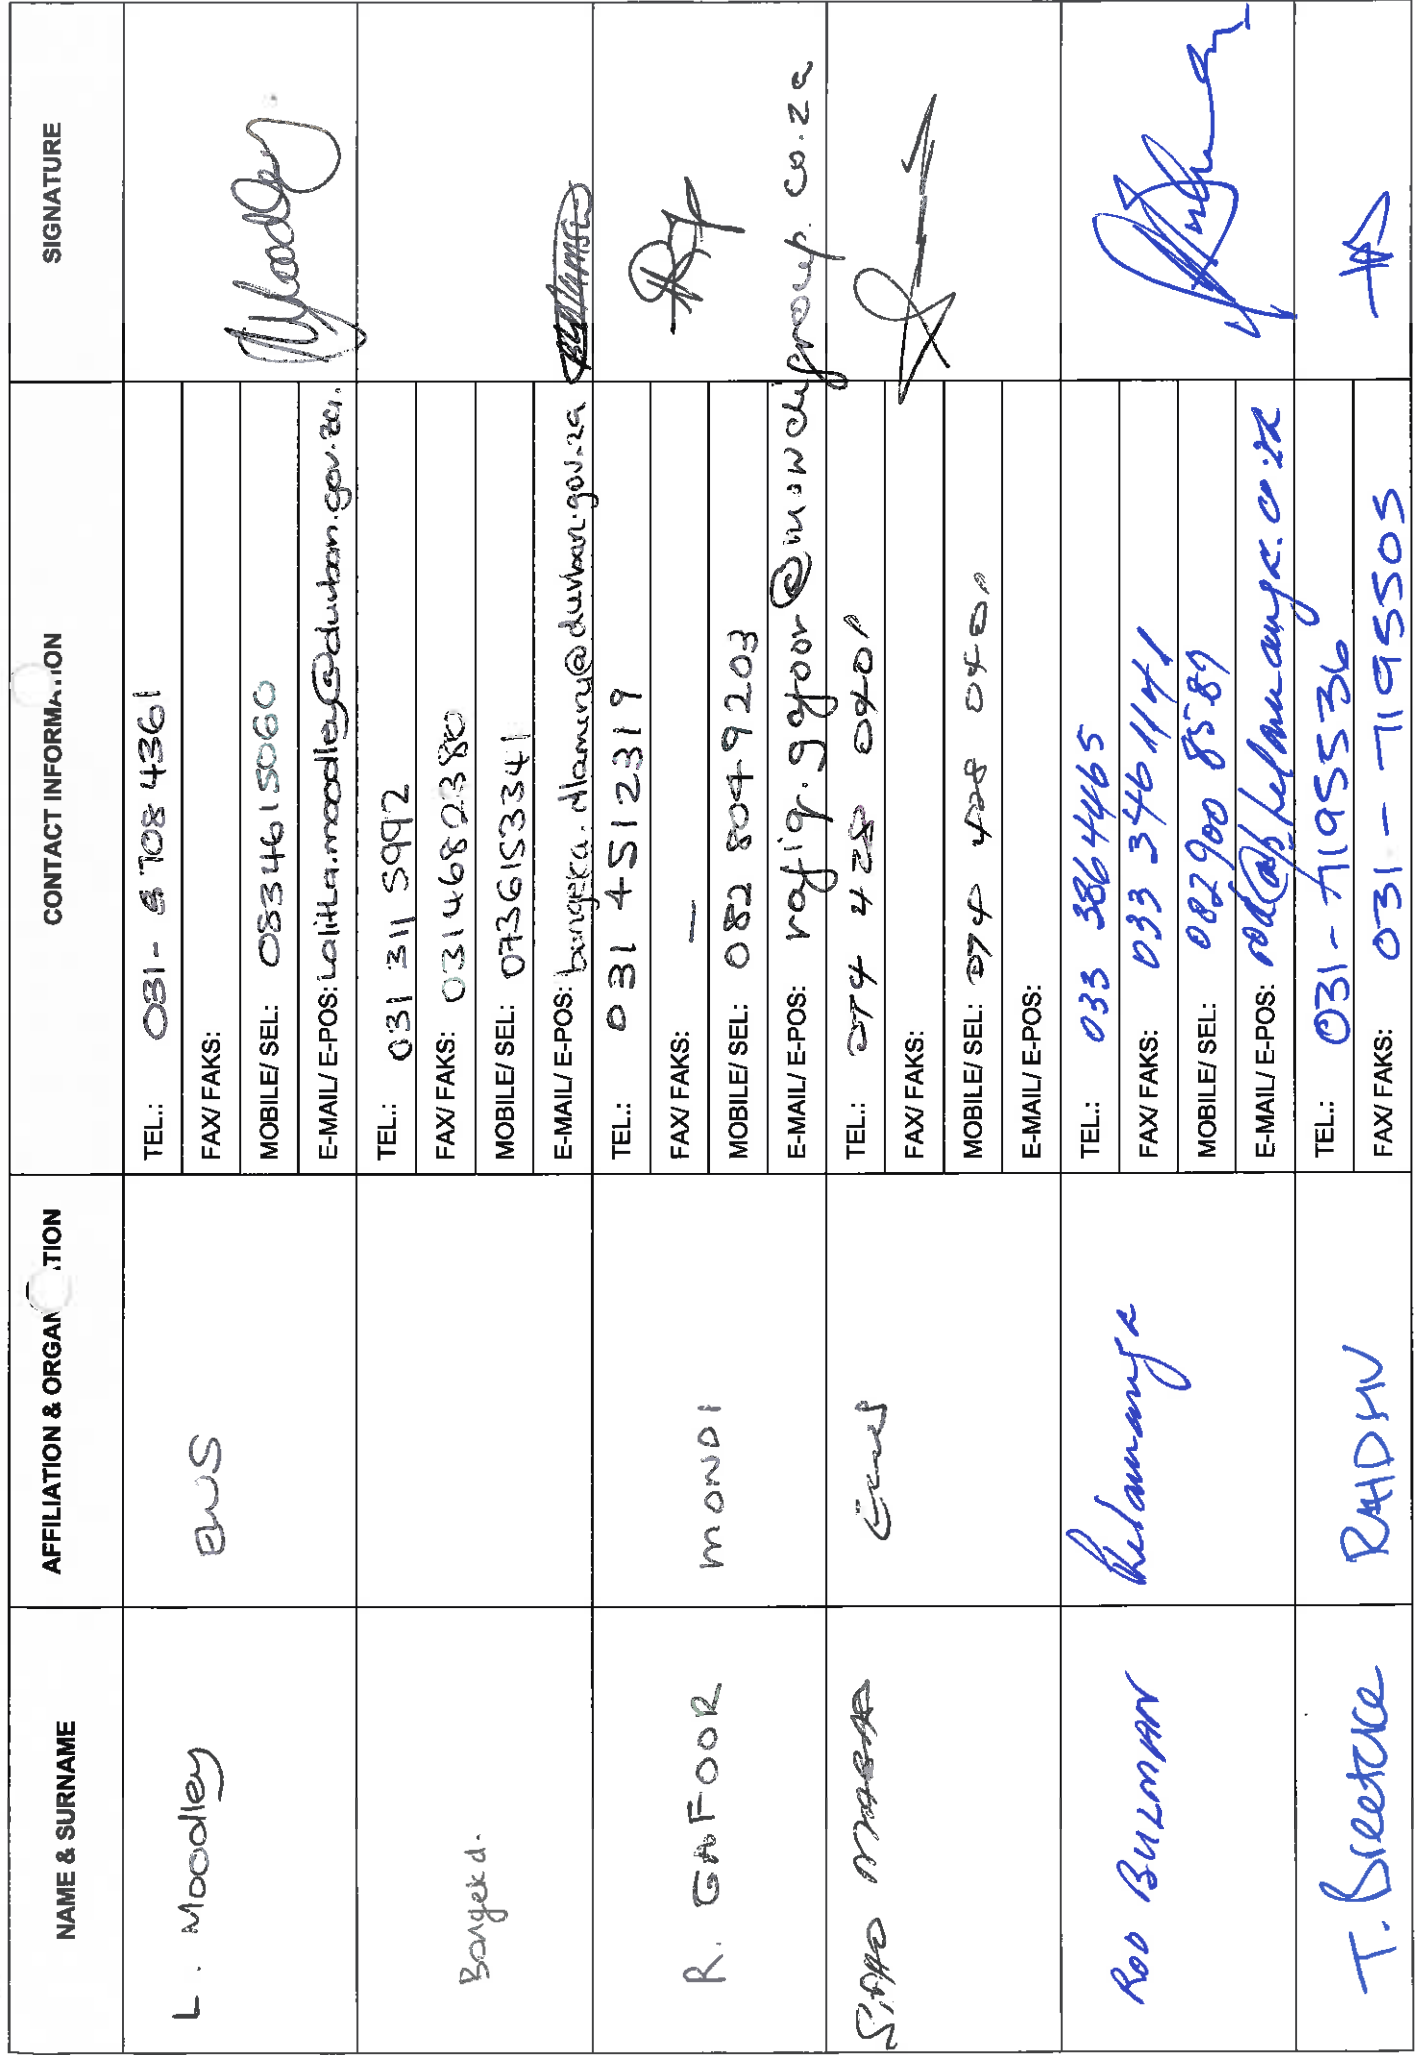 NAME & SURNAME AFFILIATION & ORGAN TION CONTACT INFORMA.ION SIGNATURE
L. Moodley EWS TEL.: 031- 8708 4361
FAX/ FAKS:
MOBILE/ SEL: 0834615060
E-MAIL/ E-POS: Lalitha.moodley@durban.gov.za.
TEL.: 031 311 5992
FAX/ FAKS: 0314682380
MOBILE/ SEL: 0736153341
E-MAIL/ E-POS: bongeka.dlamini@durban.gov.za
R. GAFOOR MONDI TEL.: 031 4512319
FAX/ FAKS: —
MOBILE/ SEL: 082 8049203
E-MAIL/ E-POS: rafiq.gafoor@mondigroup.co.za
TEL.: 074 428 0401
FAX/ FAKS:
MOBILE/ SEL: 074 428 0401
E-MAIL/ E-POS:
ROD BULMAN Phelamanga TEL.: 033 3864465
FAX/ FAKS: 033 3461141
MOBILE/ SEL: 082 900 8589
E-MAIL/ E-POS: rod@phelamanga.co.za
T. Breetzke RHDHV TEL.: 031-7195536
FAX/ FAKS: 031-7195505